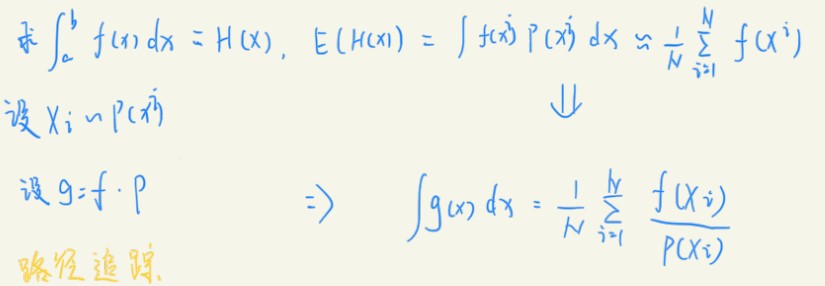 求 ∫_a^b f(x) dx = H(x), E(H(x)) = ∫ f(x^i) P(x^i) dx ≈ 1/N Σ_{i=1}^N f(x^i)
设 X_i ~ P(x^i)
⇓
设 g = f · p ⇒ ∫ g(x) dx = 1/N Σ_{i=1}^N f(X_i)/P(X_i)
路径追踪.